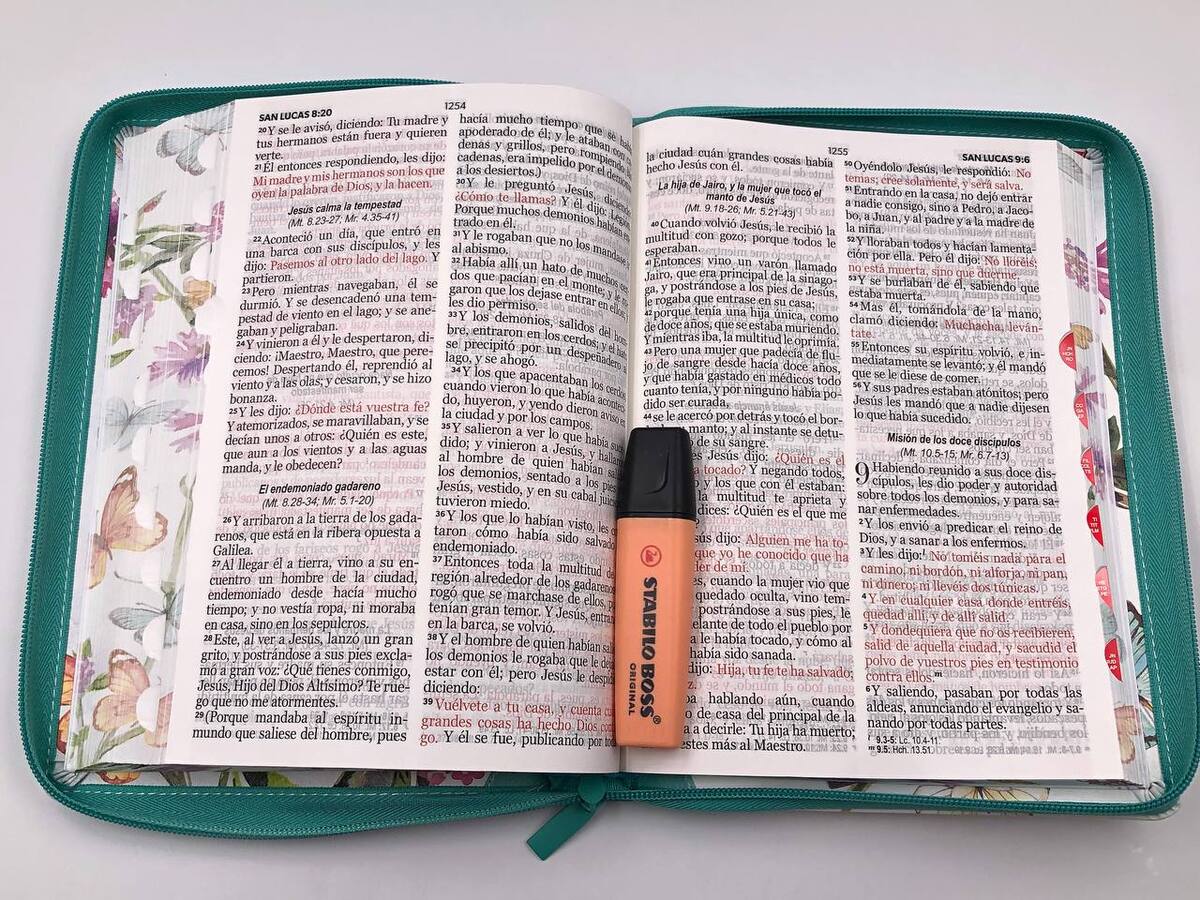 SAN LUCAS 8:20
1254
20Y se le avisó, diciendo: Tu madre y
tus hermanos están fuera y quieren
verte.
21Él entonces respondiendo, les dijo:
Mi madre y mis hermanos son los que
oyen la palabra de Dios, y la hacen.
Jesús calma la tempestad
(Mt. 8.23-27; Mr. 4.35-41)
22Aconteció un día, que entró en
una barca con sus discípulos, y les
dijo: Pasemos al otro lado del lago. Y
partieron.
23Pero mientras navegaban, él se
durmió. Y se desencadenó una tem-
pestad de viento en el lago; y se ane-
gaban y peligraban.
24Y vinieron a él y le despertaron, di-
ciendo: ¡Maestro, Maestro, que pere-
cemos! Despertando él, reprendió al
viento y a las olas; y cesaron, y se hizo
bonanza.
25Y les dijo: ¿Dónde está vuestra fe?
Y atemorizados, se maravillaban, y se
decían unos a otros: ¿Quién es este,
que aun a los vientos y a las aguas
manda, y le obedecen?
El endemoniado gadareno
(Mt. 8.28-34; Mr. 5.1-20)
26Y arribaron a la tierra de los gada-
renos, que está en la ribera opuesta a
Galilea.
27Al llegar él a tierra, vino a su en-
cuentro un hombre de la ciudad,
endemoniado desde hacía mucho
tiempo; y no vestía ropa, ni moraba
en casa, sino en los sepulcros.
28Este, al ver a Jesús, lanzó un gran
grito, y postrándose a sus pies excla-
mó a gran voz: ¿Qué tienes conmigo,
Jesús, Hijo del Dios Altísimo? Te rue-
go que no me atormentes.
29(Porque mandaba al espíritu in-
mundo que saliese del hombre, pues
hacía mucho tiempo que se había
apoderado de él; y le ataban con
denas y grillos, pero rompiendo
cadenas, era impelido por el demonio
a los desiertos.)
30Y le preguntó Jesús, diciendo:
¿Cómo te llamas? Y él dijo:
Porque muchos demonios habían
trado en él.
31Y le rogaban que no los mandase
al abismo.
32Había allí un hato de muchos
dos que pacían en el monte; y le
garon que los dejase entrar en ellos;
les dio permiso.
33Y los demonios, salidos del hom-
bre, entraron en los cerdos; y el
se precipitó por un despeñadero
lago, y se ahogó.
34Y los que apacentaban los cerdos,
cuando vieron lo que había
do, huyeron, y yendo dieron aviso en
la ciudad y por los campos.
35Y salieron a ver lo que había
dido; y vinieron a Jesús, y
al hombre de quien habían
los demonios, sentado a los pies
Jesús, vestido, y en su cabal juicio
tuvieron miedo.
36Y los que lo habían visto, les
taron cómo había sido salvado
endemoniado.
37Entonces toda la multitud de
región alrededor de los gadarenos
rogó que se marchase de ellos,
tenían gran temor. Y Jesús,
en la barca, se volvió.
38Y el hombre de quien habían
los demonios le rogaba que le
estar con él; pero Jesús le
diciendo:
39Vuélvete a tu casa, y cuenta
grandes cosas ha hecho Dios
go. Y él se fue, publicando por
STABILO BOSS®
ORIGINAL
1255
SAN LUCAS 9:6
la ciudad cuán grandes cosas había
hecho Jesús con él.
La hija de Jairo, y la mujer que tocó el
manto de Jesús
(Mt. 9.18-26; Mr. 5.21-43)
40Cuando volvió Jesús, le recibió la
multitud con gozo; porque todos le
esperaban.
41Entonces vino un varón llamado
Jairo, que era principal de la sinago-
ga, y postrándose a los pies de Jesús,
le rogaba que entrase en su casa;
42porque tenía una hija única, como
de doce años, que se estaba muriendo.
Y mientras iba, la multitud le oprimía.
43Pero una mujer que padecía de flu-
jo de sangre desde hacía doce años,
y que había gastado en médicos todo
cuanto tenía, y por ninguno había po-
dido ser curada,
44se le acercó por detrás y tocó el bor-
manto; y al instante se detu-
de su sangre.
Jesús dijo: ¿Quién es el
a tocado? Y negando todos,
y los que con él estaban:
multitud te aprieta y
dices: ¿Quién es el que me
dijo: Alguien me ha to-
que yo he conocido que ha
der de mí.
cuando la mujer vio que
quedado oculta, vino tem-
postrándose a sus pies, le
delante de todo el pueblo por
le había tocado, y cómo al
había sido sanada.
dijo: Hija, tu fe te ha salvado;
hablando aún, cuando
de casa del principal de la
a decirle: Tu hija ha muerto;
más al Maestro.
50Oyéndolo Jesús, le respondió: No
temas; cree solamente, y será salva.
51Entrando en la casa, no dejó entrar
a nadie consigo, sino a Pedro, a Jaco-
bo, a Juan, y al padre y a la madre de
la niña.
52Y lloraban todos y hacían lamenta-
ción por ella. Pero él dijo: No lloréis;
no está muerta, sino que duerme.
53Y se burlaban de él, sabiendo que
estaba muerta.
54Mas él, tomándola de la mano,
clamó diciendo: Muchacha, leván-
tate.
55Entonces su espíritu volvió, e in-
mediatamente se levantó; y él mandó
que se le diese de comer.
56Y sus padres estaban atónitos; pero
Jesús les mandó que a nadie dijesen
lo que había sucedido.
Misión de los doce discípulos
(Mt. 10.5-15; Mr. 6.7-13)
9 Habiendo reunido a sus doce dis-
cípulos, les dio poder y autoridad
sobre todos los demonios, y para sa-
nar enfermedades.
2Y los envió a predicar el reino de
Dios, y a sanar a los enfermos.
3Y les dijo: No toméis nada para el
camino, ni bordón, ni alforja, ni pan,
ni dinero; ni llevéis dos túnicas.
4Y en cualquier casa donde entréis,
quedad allí, y de allí salid.
5Y dondequiera que no os recibieren,
salid de aquella ciudad, y sacudid el
polvo de vuestros pies en testimonio
contra ellos.m
6Y saliendo, pasaban por todas las
aldeas, anunciando el evangelio y sa-
nando por todas partes.
9.3-5: Lc. 10.4-11.
m 9.5: Hch. 13.51.